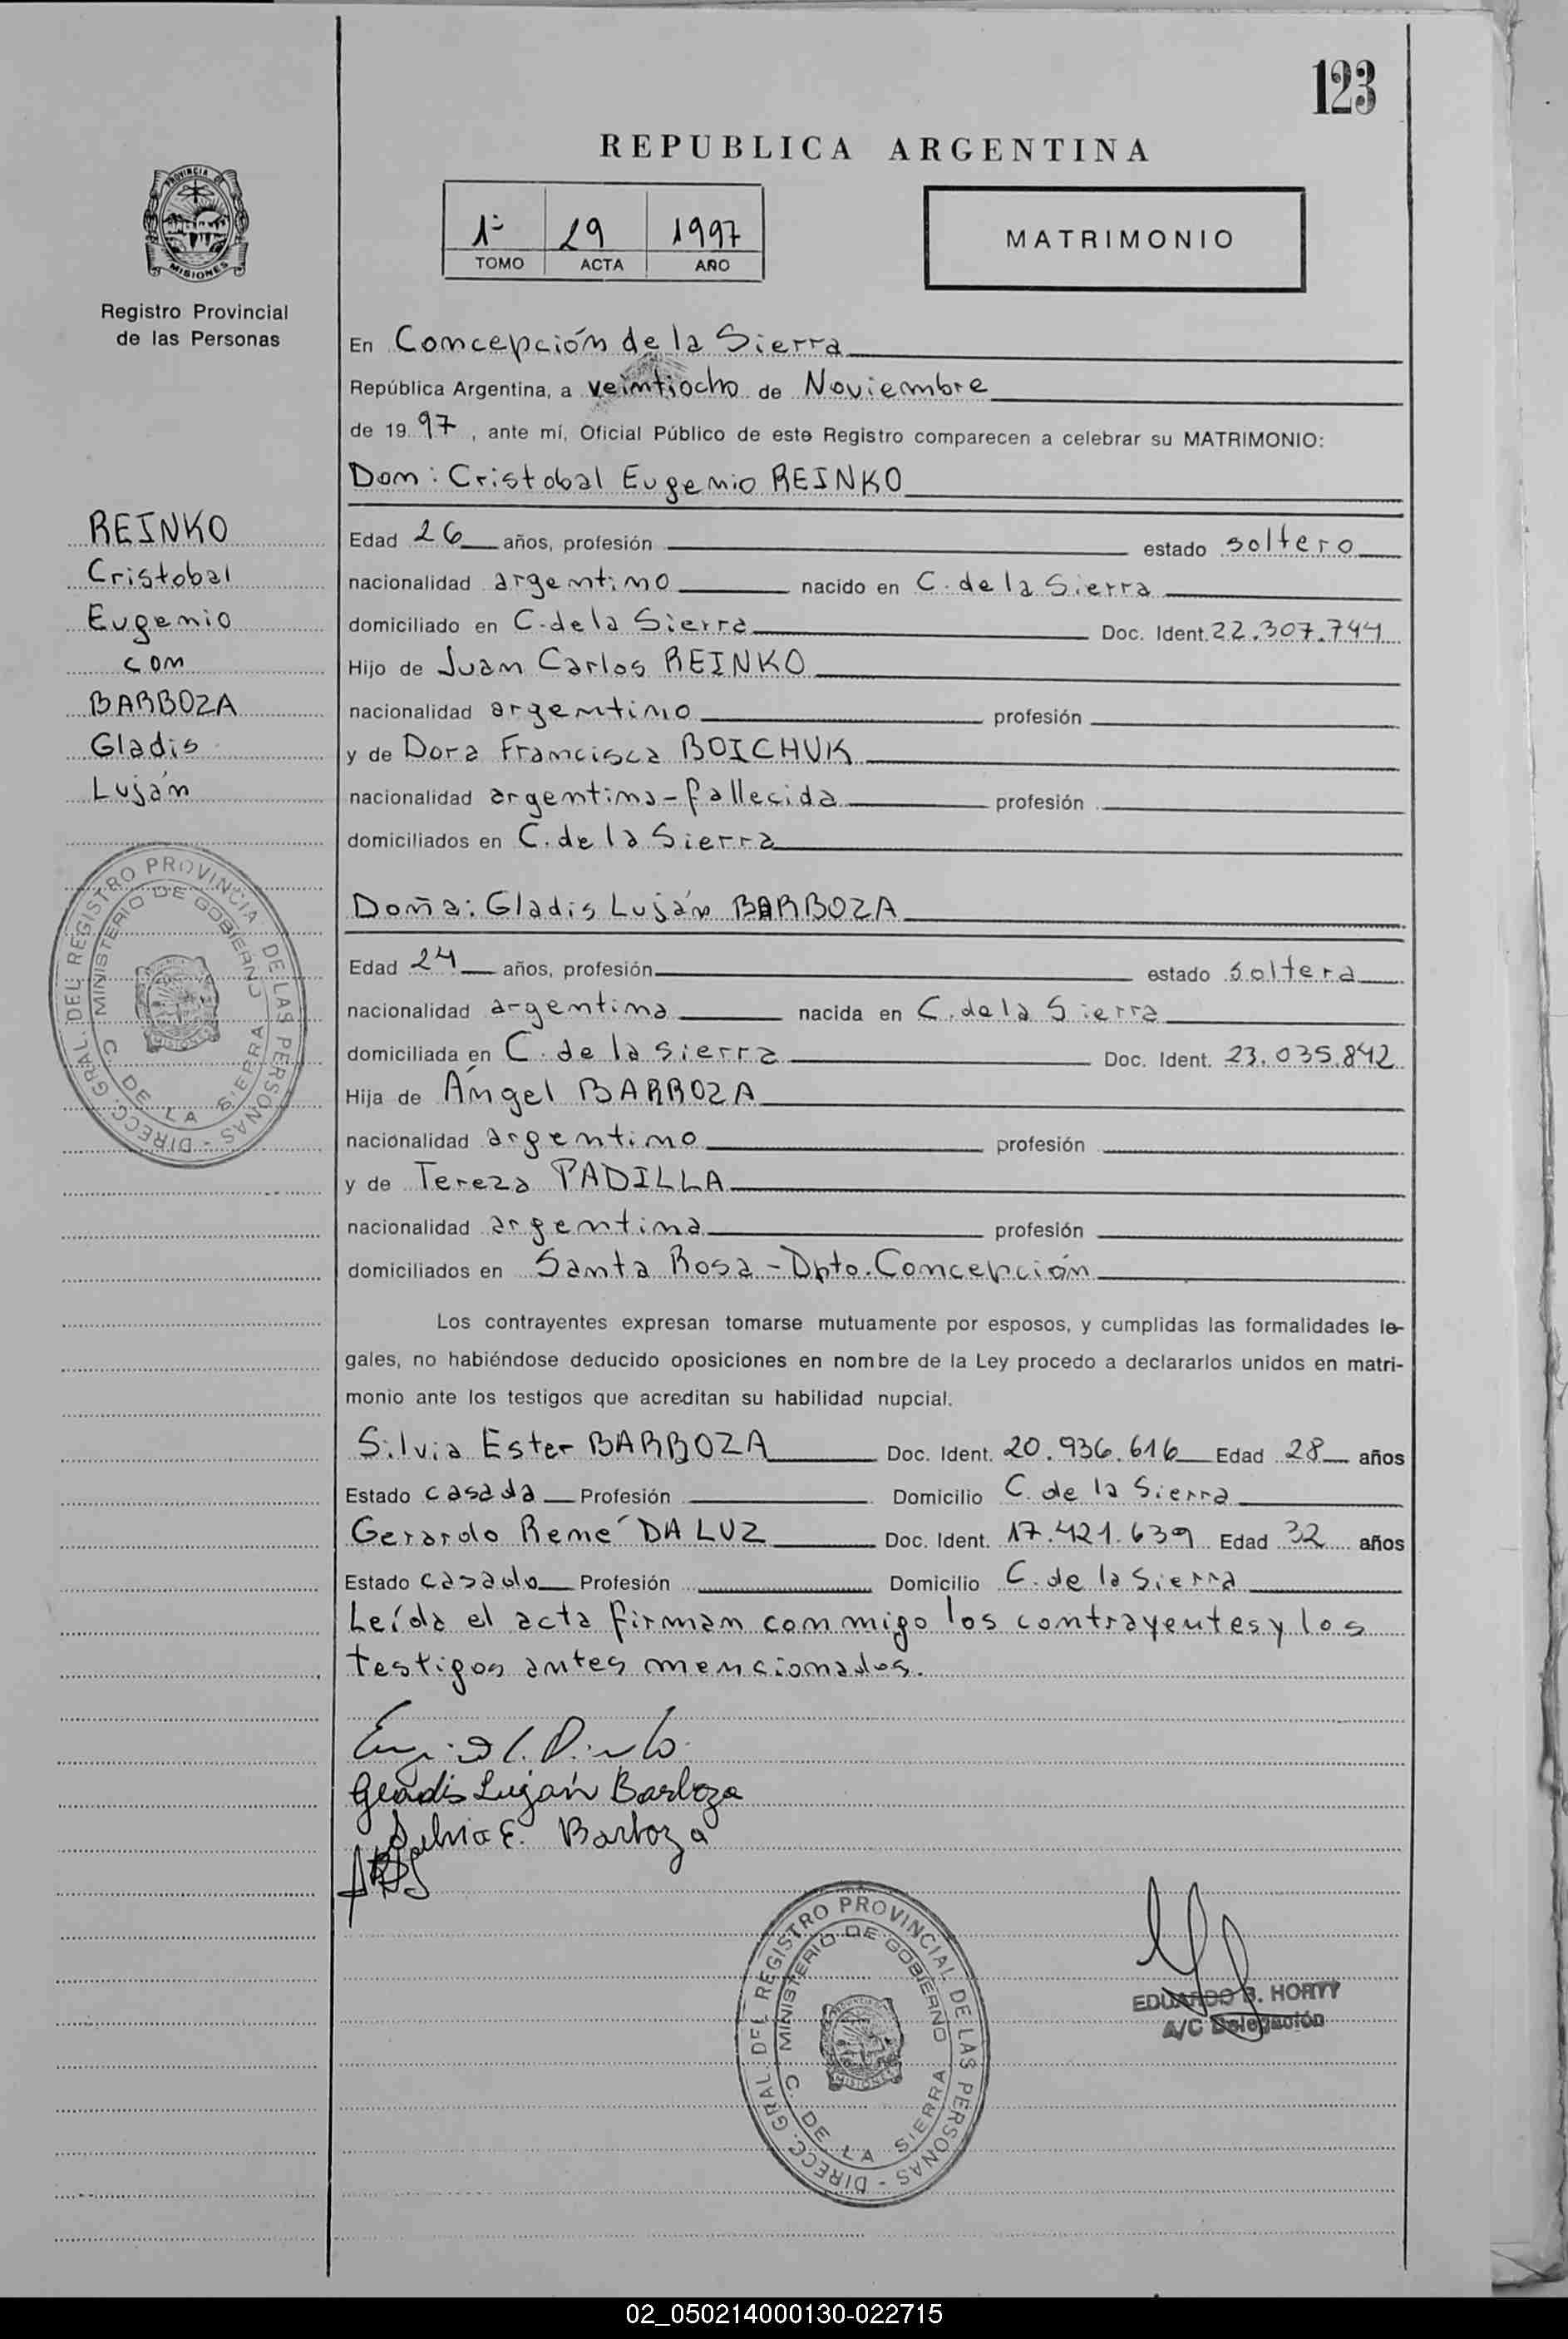 123
REPUBLICA ARGENTINA
PROVINCIA DE MISIONES
Registro Provincial
de las Personas
1º 29 1997
TOMO ACTA AÑO
MATRIMONIO
En Concepción de la Sierra
República Argentina, a veintiocho de Noviembre
de 1997, ante mí, Oficial Público de este Registro comparecen a celebrar su MATRIMONIO:
Don: Cristobal Eugenio REINKO
REINKO
Cristobal
Eugenio
con
BARBOZA
Gladis
Luján
Edad 26 años, profesión estado soltero
nacionalidad argentino nacido en C. de la Sierra
domiciliado en C. de la Sierra Doc. Ident. 22.307.744
Hijo de Juan Carlos REINKO
nacionalidad argentino profesión
y de Dora Francisca BOICHUK
nacionalidad argentina - fallecida profesión
domiciliados en C. de la Sierra
Doña: Gladis Luján BARBOZA
Edad 24 años, profesión estado soltera
nacionalidad argentina nacida en C. de la Sierra
domiciliada en C. de la sierra Doc. Ident. 23.035.842
Hija de Ángel BARBOZA
nacionalidad argentino profesión
y de Tereza PADILLA
nacionalidad argentina profesión
domiciliados en Santa Rosa - Dpto. Concepción
Los contrayentes expresan tomarse mutuamente por esposos, y cumplidas las formalidades le-
gales, no habiéndose deducido oposiciones en nombre de la Ley procedo a declararlos unidos en matri-
monio ante los testigos que acreditan su habilidad nupcial.
Silvia Ester BARBOZA Doc. Ident. 20.936.616 Edad 28 años
Estado casada Profesión Domicilio C. de la Sierra
Gerardo René DA LUZ Doc. Ident. 17.421.639 Edad 32 años
Estado casado Profesión Domicilio C. de la Sierra
Leída el acta firman conmigo los contrayentes y los
testigos antes mencionados.
Gladis Luján Barboza
Silvia E. Barboza
DIRECC. GRAL. DEL REGISTRO PROVINCIAL DE LAS PERSONAS
MINISTERIO DE GOBIERNO
C. DE LA SIERRA
DIRECC. GRAL. DEL REGISTRO PROVINCIAL DE LAS PERSONAS
MINISTERIO DE GOBIERNO
C. DE LA SIERRA
EDUARDO B. HORTY
A/C Delegación
02_050214000130-022715